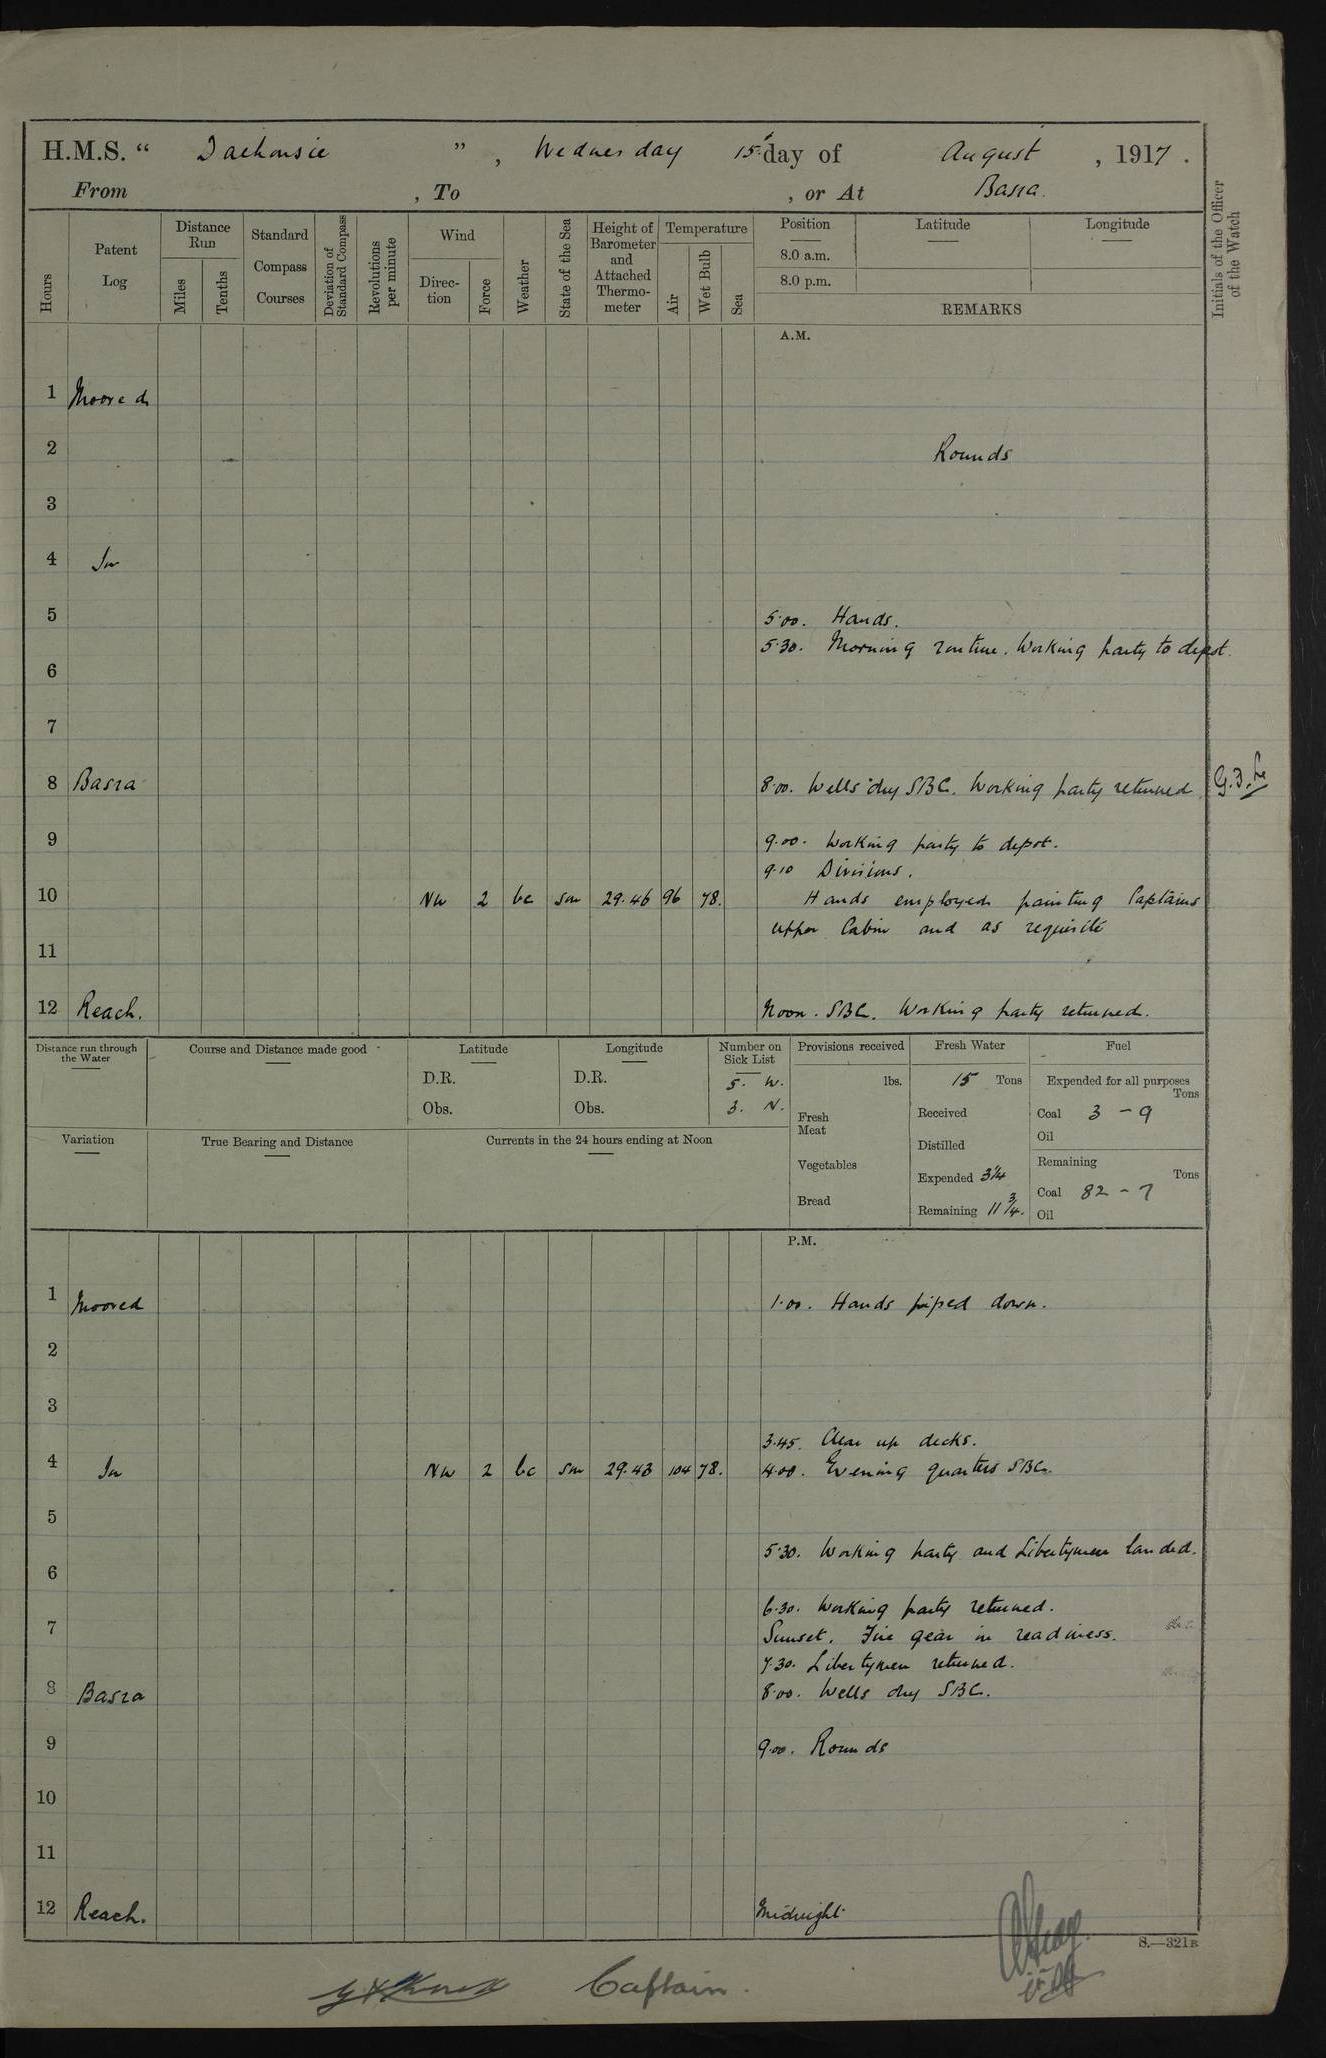 H.M.S. " Dalhousie ", Wednesday 15th day of August, 1917.
From , To , or At Basra.
Hours
Patent Log
Distance Run
Miles
Tenths
Standard Compass Courses
Deviation of Standard Compass
Revolutions per minute
Wind
Direction
Force
Weather
State of the Sea
Height of Barometer and Attached Thermometer
Temperature
Air
Wet Bulb
Sea
Position
8.0 a.m.
8.0 p.m.
Latitude
Longitude
REMARKS
Initials of the Officer of the Watch
A.M.
1 Moored
2 Rounds
3
4 In
5 5.00. Hands.
5.30. Morning routine. Working party to depot.
6
7
8 Basra 8.00. Wells dry SBC. Working party returned
9 9.00. Working party to depot.
9.10 Divisions.
10 NW 2 bc sm 29.46 96 78. Hands employed painting Captains
upper Cabin and as requisite
11
12 Reach. Noon. SBC. Working party returned.
Distance run through the Water
Course and Distance made good
Latitude
D.R.
Obs.
Longitude
D.R.
Obs.
Number on Sick List
5. W.
3. N.
Variation
True Bearing and Distance
Currents in the 24 hours ending at Noon
Provisions received
lbs.
Fresh Meat
Vegetables
Bread
Fresh Water
15 Tons
Received
Distilled
Expended 3¼
Remaining 11¾.
Fuel
Expended for all purposes
Tons
Coal 3 - 9
Oil
Remaining
Tons
Coal 82 - 7
Oil
P.M.
1 Moored 1.00. Hands piped down.
2
3
3.45. Clear up decks.
4 In NW 2 bc sm 29.43 104 78. 4.00. Evening quarters SBC.
5
5.30. Working party and Libertymen landed.
6
6.30. Working party returned.
7 Sunset. Fire gear in readiness.
7.30. Libertymen returned.
8 Basra 8.00. Wells dry SBC.
9 9.00. Rounds
10
11
12 Reach. Midnight
S.—321B
Captain.